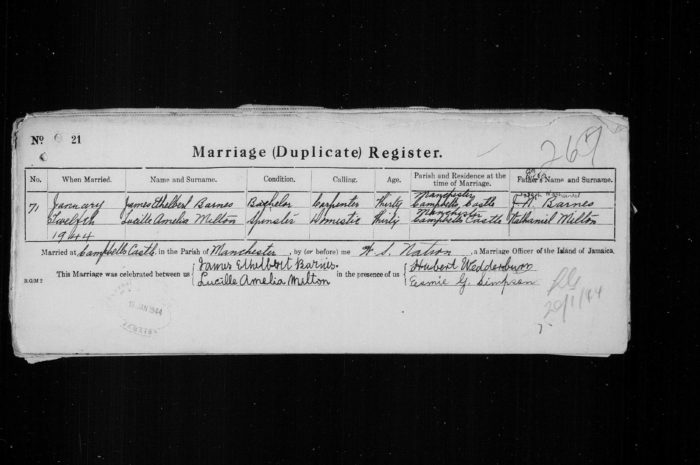 No 21
267
Marriage (Duplicate) Register.
No. When Married. Name and Surname. Condition. Calling. Age. Parish and Residence at the time of Marriage. Father's Name and Surname.
71 January James Ethelbert Barnes Bachelor Carpenter Thirty Manchester Campbells Castle J. N. Barnes
Twelfth Lucille Amelia Milton Spinster Domestic Thirty Manchester Campbells Castle Nathaniel Milton
1944
Married at Campbells Castle, in the Parish of Manchester, by (or before) me H. S. Nation, a Marriage Officer of the Island of Jamaica.
This Marriage was celebrated between us James Ethelbert Barnes. in the presence of us Hubert Wedderburn
Lucille Amelia Milton Esmie G. Simpson
R.G.M 2
JAN 1944
20/1/44